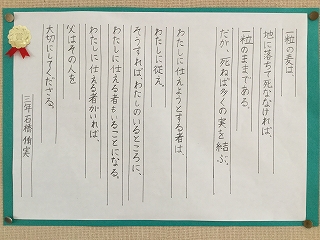 一粒の麦は、
地に落ちて死ななければ、
一粒のままである。
だが、死ねば多くの実を結ぶ。
わたしに仕えようとする者は、
わたしに従え。
そうすれば、わたしのいるところに、
わたしに仕える者もいることになる。
わたしに仕える者がいれば、
父はその人を
大切にしてくださる。
三年 石橋 侑実